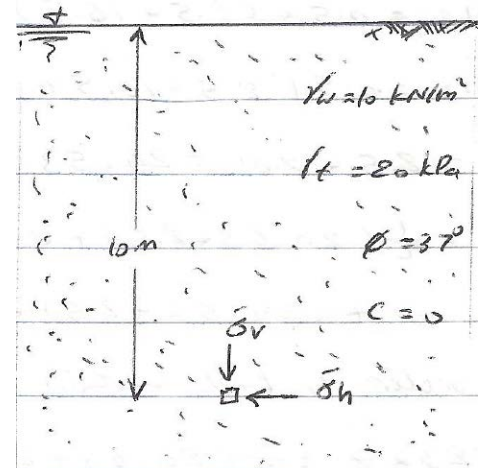 γw = 10 kN/m²
γt = 20 kPa
10m
ø = 37°
C = 0
σ̄v
σ̄h